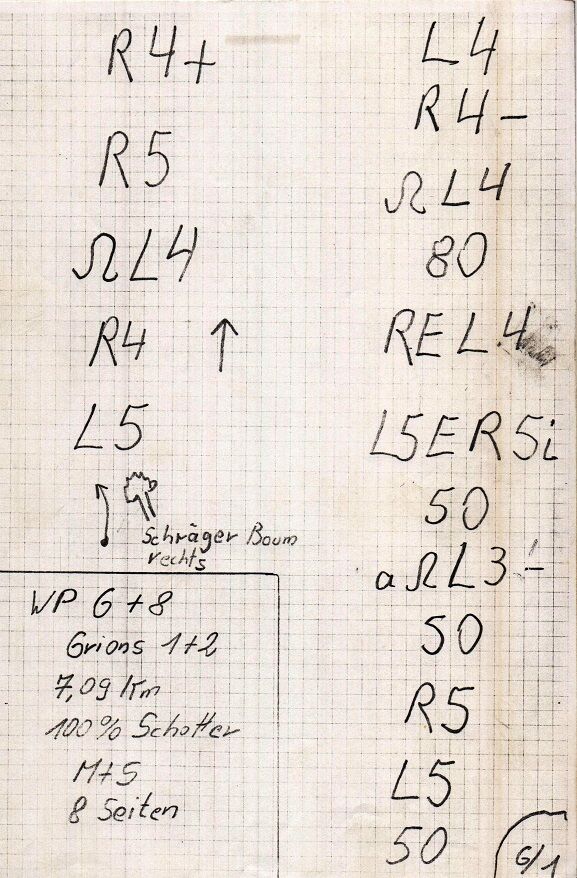 R4+
R5
ΩL4
R4 ↑
L5
Schräger Baum
rechts
WP 6+8
Grions 1+2
7,09 Km
100% Schotter
M+S
8 Seiten
L4
R4-
ΩL4
80
REL4
L5ER5i
50
aΩL3-
50
R5
L5
50
6/1